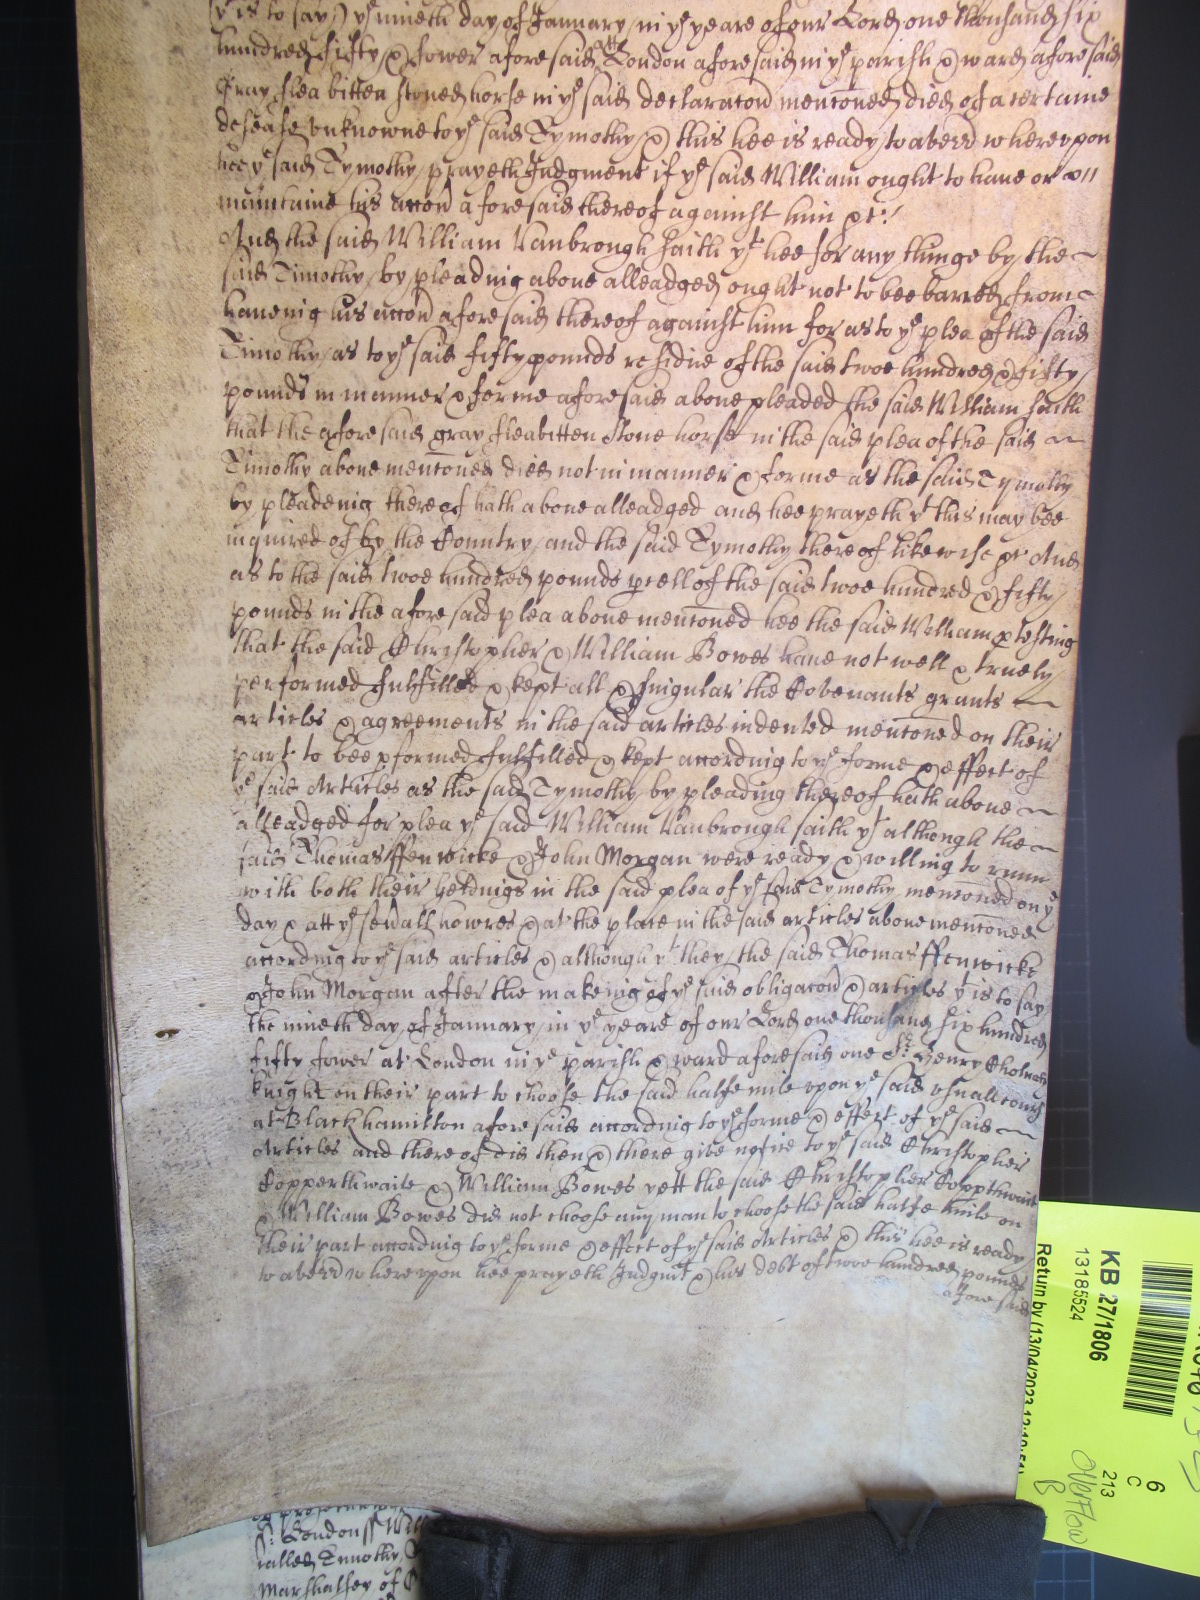 yt is to say) ye nineth day of January in ye yeare of our Lord one thousand six
hundred fifty & fower aforesaid att London aforesaid in ye parish & ward aforesaid
Gray flea bitten stoned horse in ye said declaracon menconed died of a certaine
desease unknowne to ye said Tymothy & this hee is ready to averr whereupon
hee ye said Tymothy prayeth Judgment if ye said William ought to have or
maintaine his accon aforesaid thereof against him &c:
And the said William Vanbrough saith yt hee for any thinge by the
said Timothy by pleading above alleadged ought not to bee barred from
haveing his accon aforesaid thereof against him for as to ye plea of the said
Timothy as to ye said fifty pounds residue of the said twoe hundred & fifty
pounds in manner & forme aforesaid above pleaded the said William saith
that the aforesaid gray fleabitten Stone horse in the said plea of the said
Timothy above menconed died not in manner & forme as the said Tymothy
by pleadeing thereof hath above alleadged and hee prayeth yt this may bee
inquired of by the Country and the said Tymothy thereof likewise &c And
as to the said twoe hundred pounds pcell of the said twoe hundred & fifty
pounds in the aforesaid plea above menconed hee the said William ptesting
that the said Christopher & William Bowes have not well & truely
performed fulfilled & kept all & singular the Covenants grants
articles & agreements in the said articles indented menconed on their
part to bee pformed fulfilled & kept according to ye forme & effect of
ye said Articles as the said Tymothy by pleading thereof hath above
alleadged for plea ye said William Vanbrough saith yt although the
said Thomas ffenwicke & John Morgan were ready & willing to runn
with both their Geldings in the said plea of ye said Tymothy menconed on ye
day & att ye sevall howres & at the place in the said articles above menconed
according to ye said articles & although yt they the said Thomas ffenwicke
& John Morgan after the makeing of ye said obligacon & articles yt is to say
the nineth day of January in ye yeare of our Lord one thousand six hundred
fifty fower at London in ye parish & ward aforesaid one Sr. Henry Cholmly
knight on their part to choose the said halfe mile upon ye said usuall course
at Blackhamilton aforesaid according to ye forme & effect of ye said
Articles and thereof did then & there give notice to ye said Christopher
Copperthwaite & William Bowes yett the said Christopher Coppthwait
& William Bowes did not choose any man to choose the said halfe mile on
their part according to ye forme & effect of ye said Articles & this hee is ready
to averr whereupon hee prayeth Judgmt & his debt of twoe hundred pounds
aforesaid
called Timothy
Marshalsey of
KB 27/1806
13185524
Return by (13/04/2023
6
C
213
Overflow
B